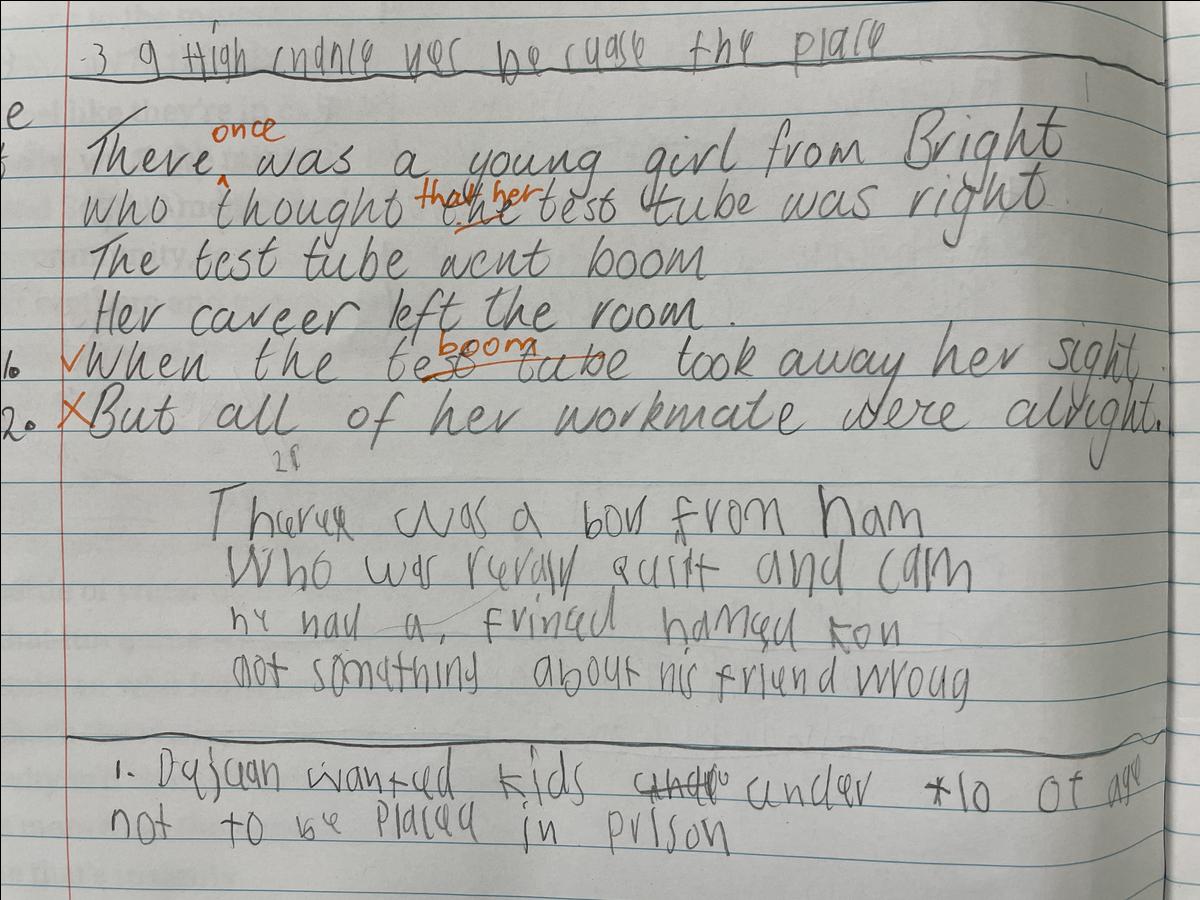 -3 a High chance yes because the place
e
once
There was a young girl from Bright
that her
who thought the test tube was right
The test tube went boom
Her career left the room.
boom
1. ✓ When the test tube took away her sight.
2. ✗ But all of her workmate were alright.
There was a boy from ham
Who was really and cam
he had a. frined named Kon
got something about his friend wroug
1. Dajuan wanted kids under *10 of age
not to be placed in prison